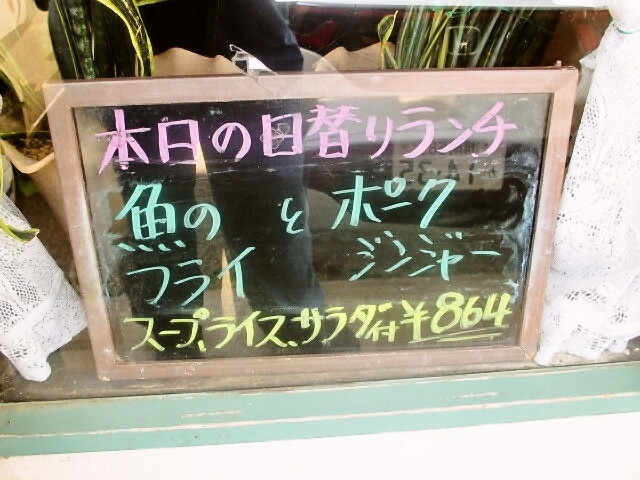 本日の日替りランチ
魚の と ポーク
フライ ジンジャー
スープ、ライス、サラダ付 ¥864